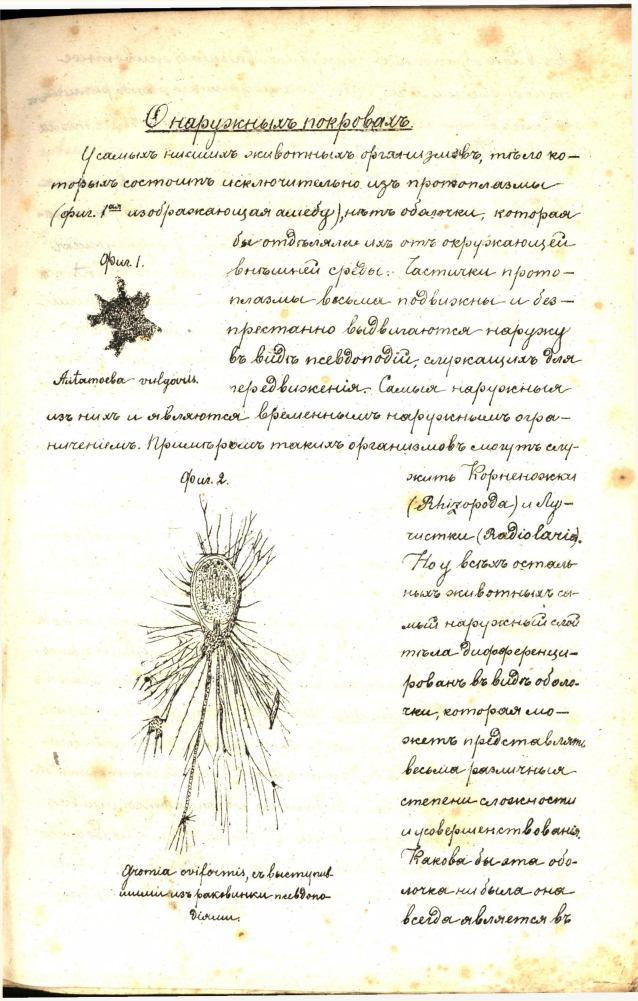 О наружныхъ покровахъ.
У самыхъ низшихъ животныхъ организмовъ, тѣло ко-
торыхъ состоитъ исключительно изъ протоплазмы
(фиг. 1ая изображающая амебу), нѣтъ оболочки, которая
бы отдѣляла ихъ отъ окружающей
внѣшней среды. Частички прото-
плазмы весьма подвижны и без-
престанно выдвигаются наружу
въ видѣ псевдоподій, служащихъ для
передвиженія. Самыя наружныя
Фиг. 1.
vulgaris.
изъ нихъ и являются временнымъ наружнымъ огра-
ниченіемъ. Примѣромъ такихъ организмовъ могутъ слу-
жить Корненожки
(Rhizopoda) и Лу-
чистки (Radiolaria).
Но у всѣхъ осталь
ныхъ животныхъ са-
мый наружный слой
тѣла дифференци-
рованъ въ видѣ оболо-
чки, которая мо-
жетъ представлять
весьма различныя
степени сложности
и усовершенствованія.
Какова бы эта обо-
лочка ни была она
всегда является въ
Фиг. 2.
Gromia oviformis, съ выступив-
шими изъ раковинки псевдопо-
діями.